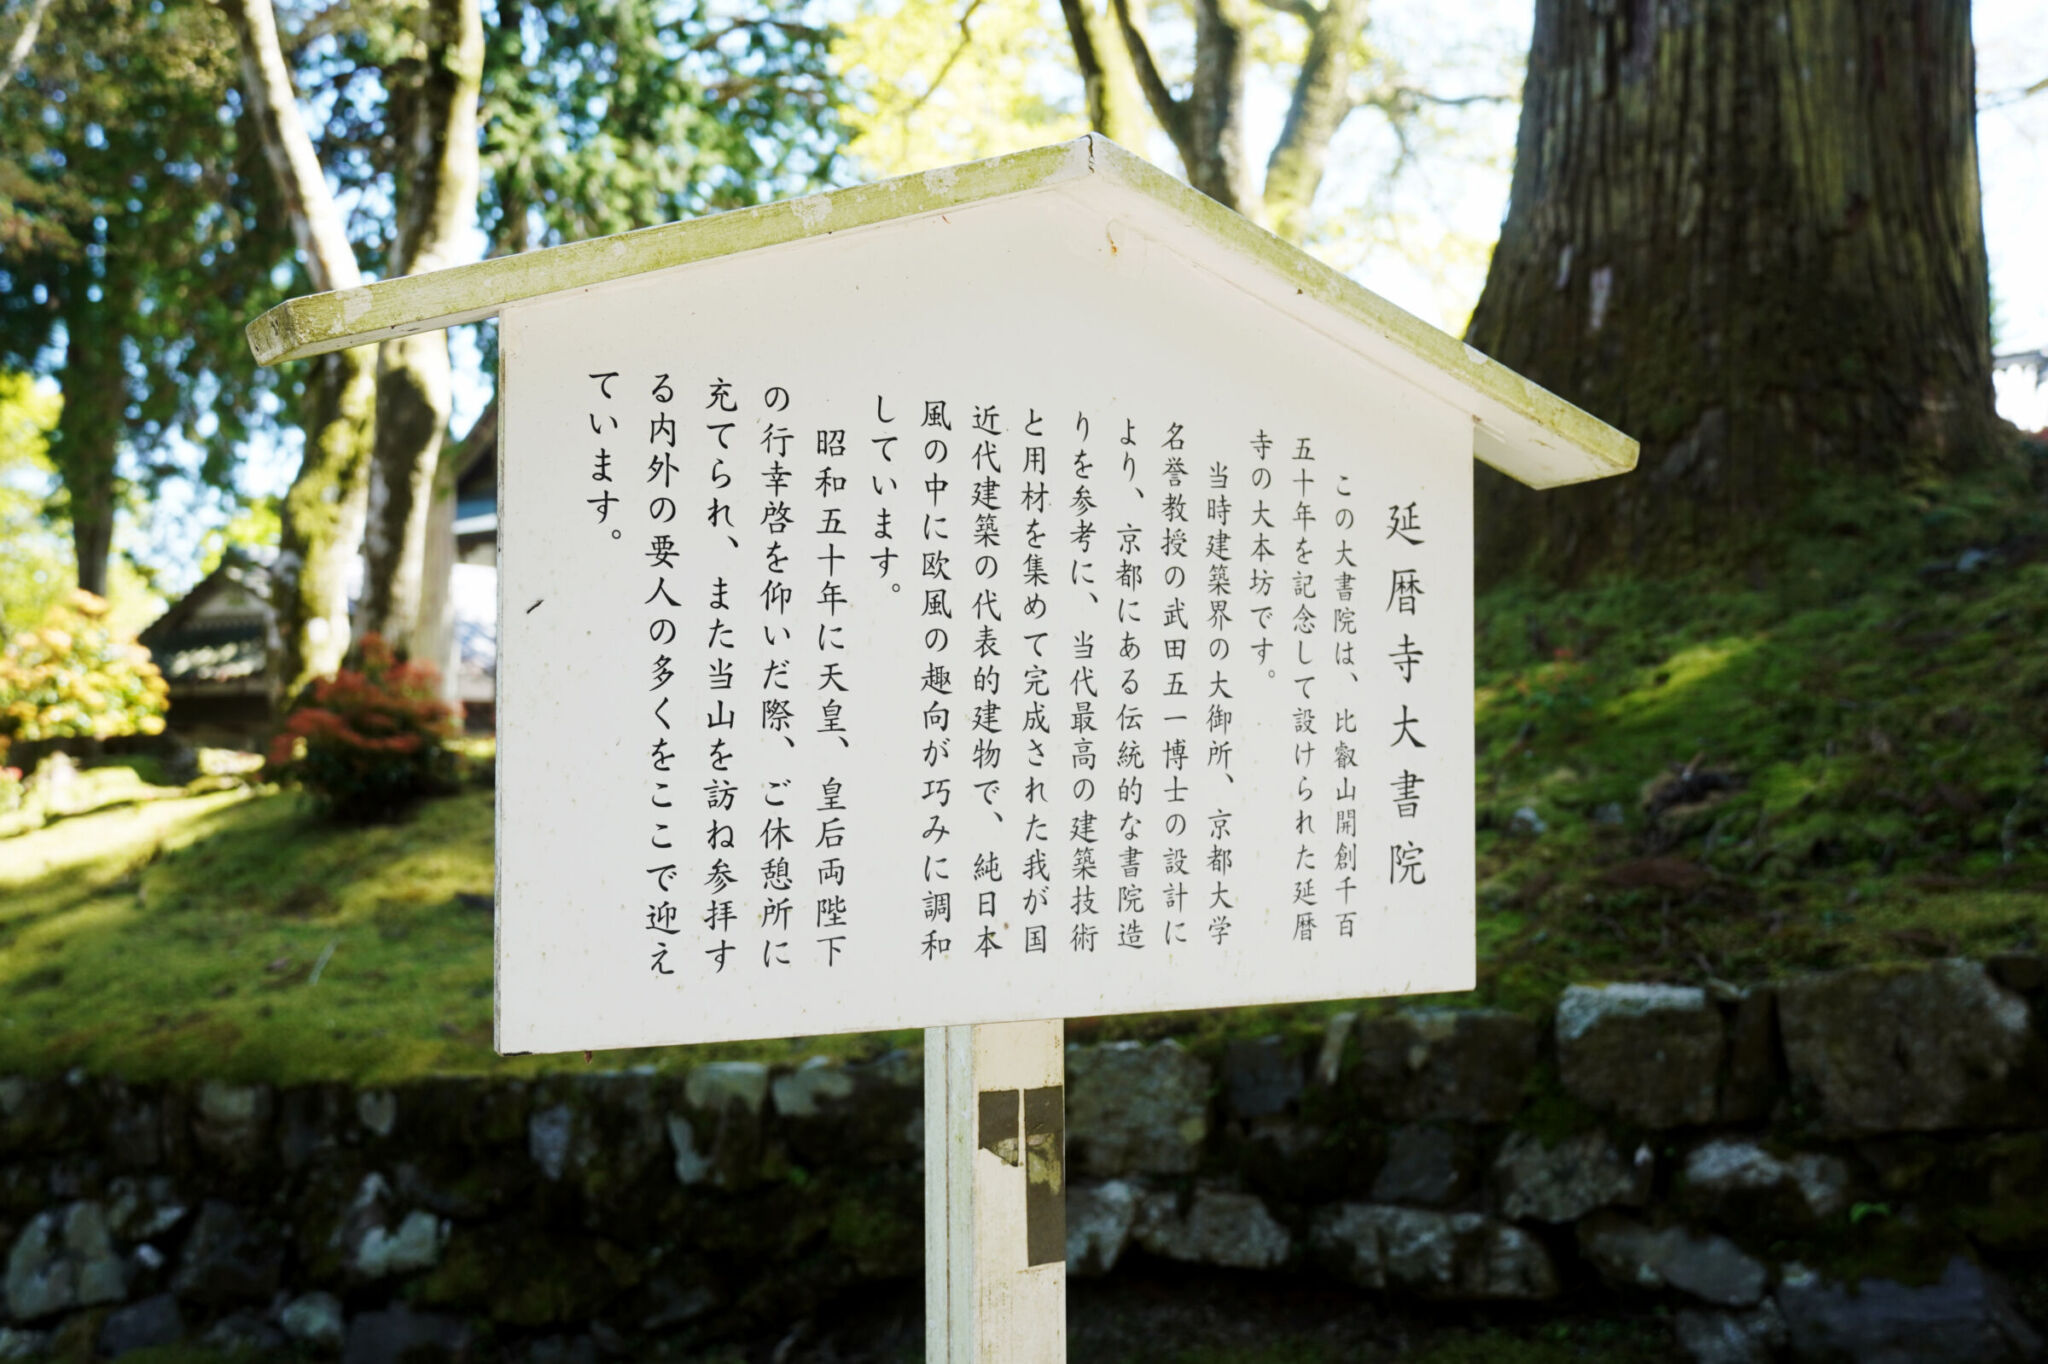 延暦寺大書院
この大書院は、比叡山開創千百
五十年を記念して設けられた延暦
寺の大本坊です。
当時建築界の大御所、京都大学
名誉教授の武田五一博士の設計に
より、京都にある伝統的な書院造
りを参考に、当代最高の建築技術
と用材を集めて完成された我が国
近代建築の代表的建物で、純日本
風の中に欧風の趣向が巧みに調和
しています。
昭和五十年に天皇、皇后両陛下
の行幸啓を仰いだ際、ご休憩所に
充てられ、また当山を訪ね参拝す
る内外の要人の多くをここで迎え
ています。